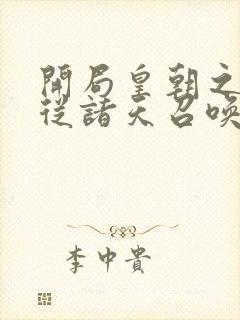 開局皇朝之
從諸天召喚
李中貴